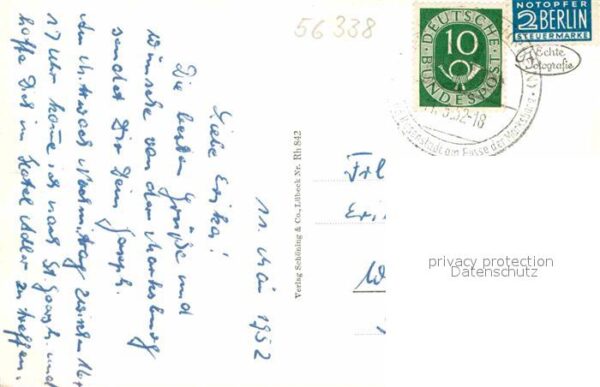 56338
11. Mai 1952
Liebe Erika!
Die besten Grüße und
Wünsche von der Marksburg
sendet Dir Dein Joseph.
Am Mittwoch Nachmittag zwischen 16 +
17 Uhr komme ich nach St. Goarsh. und
hoffe Dich im Hotel Adler zu treffen.
Verlag Schöning & Co., Lübeck Nr. Rh 842
DEUTSCHE
10
BUNDESPOST
NOTOPFER
2 BERLIN
STEUERMARKE
Echte
Fotografie
5.52-18
am Fusse der Marksburg
Frl
Eri
W
privacy protection
Datenschutz